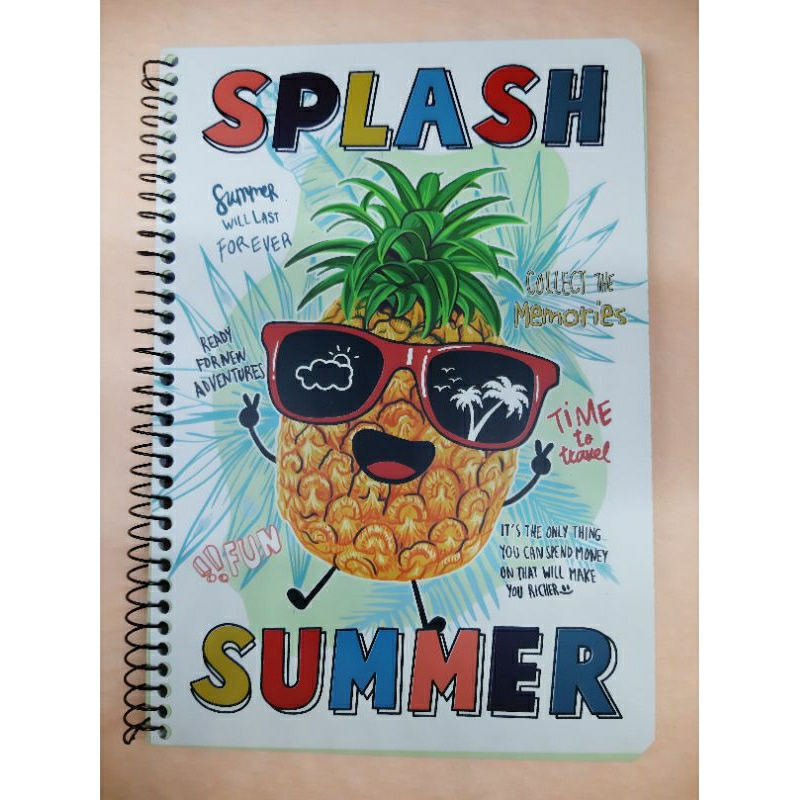 SPLASH
Summer
WILL LAST
FOREVER
COLLECT THE
Memories
READY
FOR NEW
ADVENTURES
TiME
to
travel
!!FUN
IT'S THE ONLY THING
YOU CAN SPEND MONEY
ON THAT WILL MAKE
YOU RICHER
SUMMER